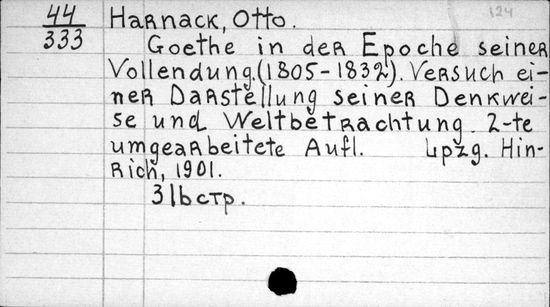 44 Harnack, Otto. 124
333 Goethe in der Epoche seiner
Vollendung.(1805-1832). Versuch ei-
ner Darstellung seiner Denkwei-
se und Weltbetrachtung. 2-te
umgearbeitete Aufl. Lpzg. Hin-
rich, 1901.
316 стр.